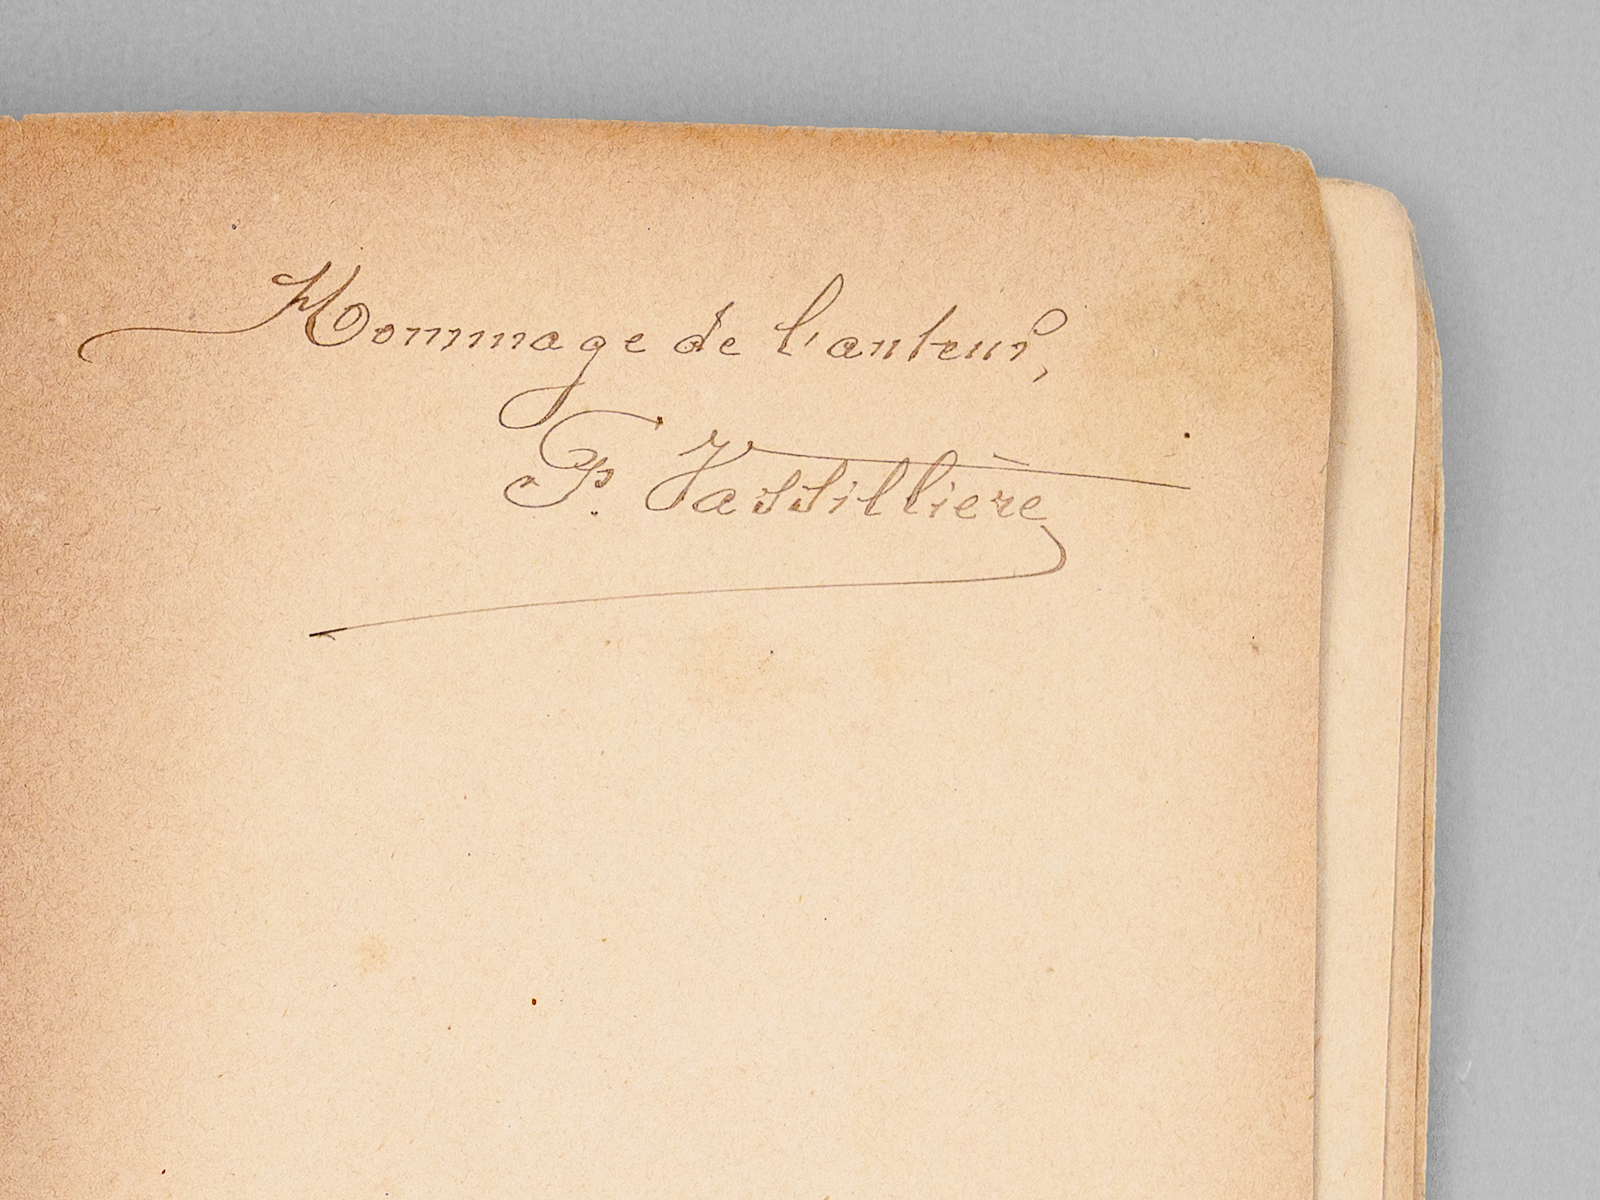 Hommage de l'auteur,
F. Vassillière